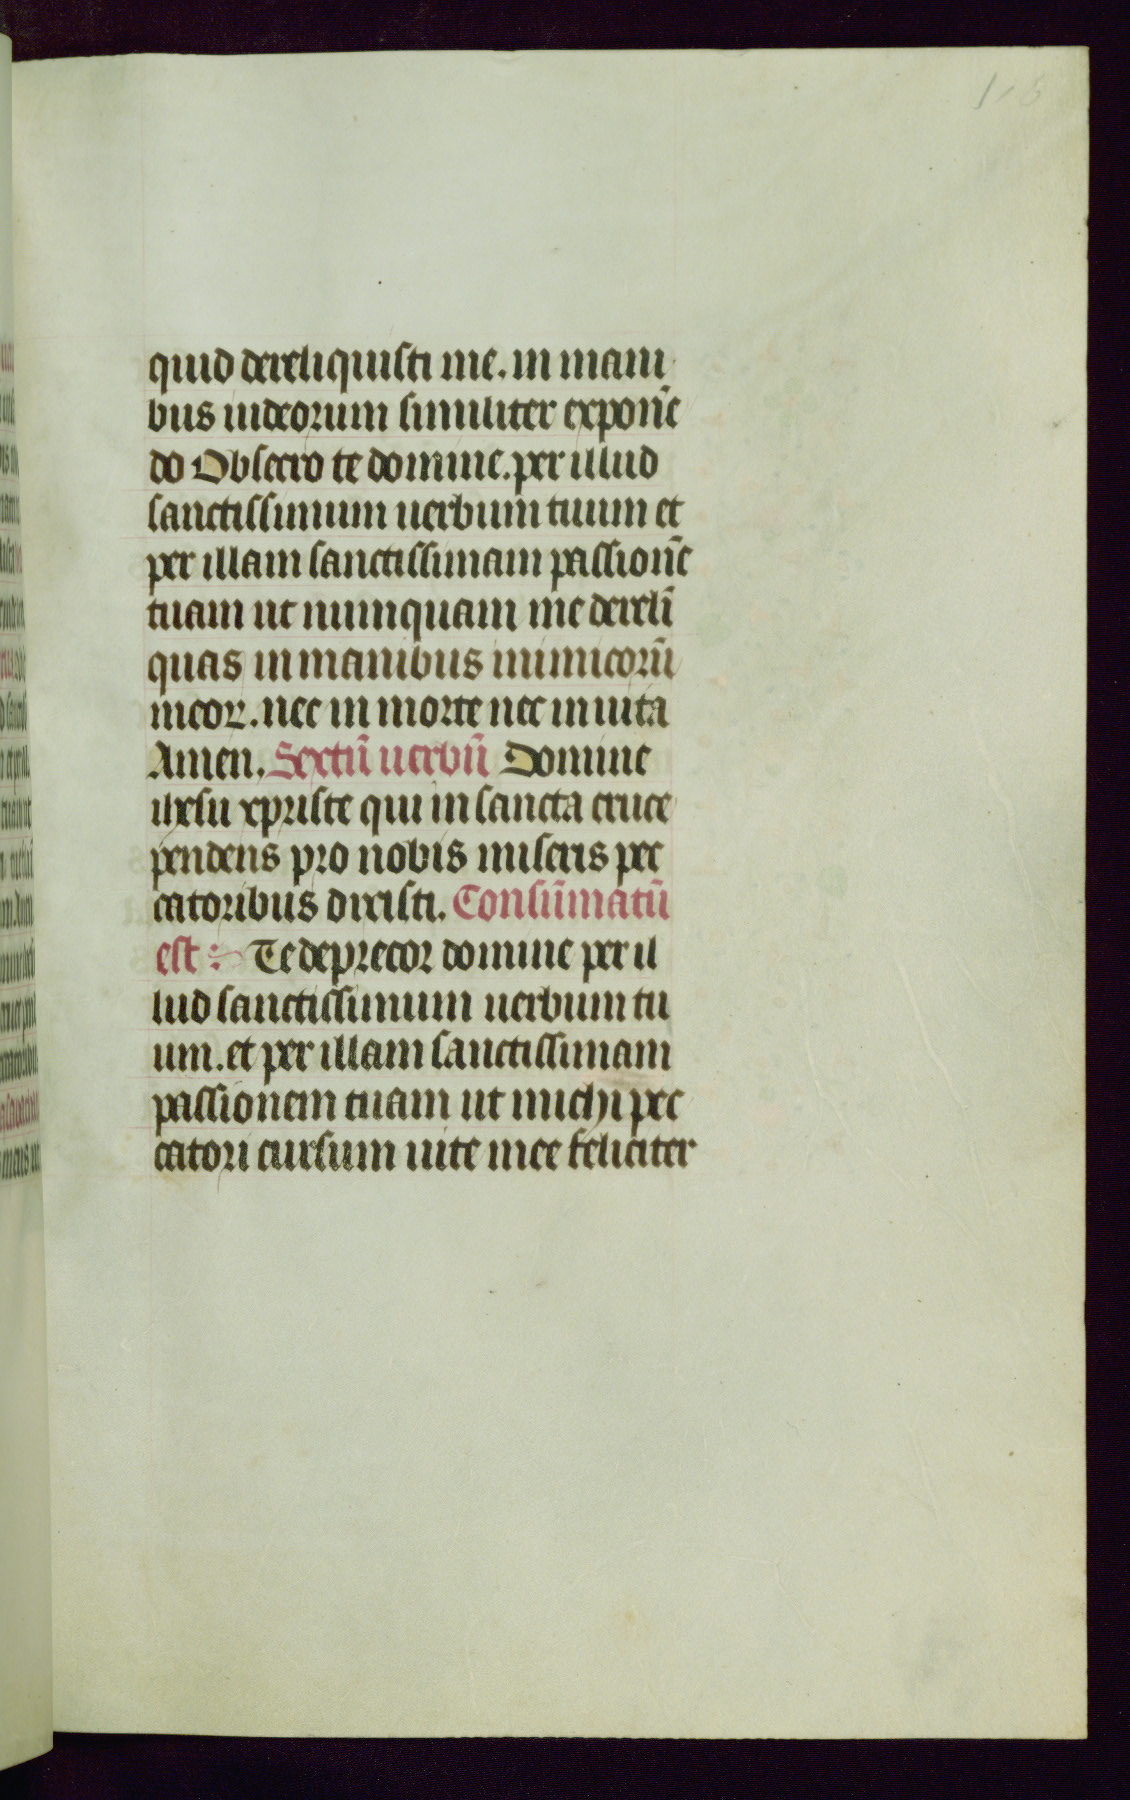 quid dereliquisti me. in mani
bus iudeorum similiter exponē
do Obsecro te domine. per illud
sanctissimum uerbum tuum et
per illam sanctissimam passionē
tuam ut numquam me dereli
quas in manibus inimicorū
meoꝝ. nec in morte nec in uita
Amen. Sextū uerbū Domine
ihesu xpriste qui in sancta cruce
pendens pro nobis miseris pec
catoribus dixisti. Consūmatū
est : Te deprecor domine per il
lud sanctissimum uerbum tu
um. et per illam sanctissimam
passionem tuam ut michi pec
catori cursum uite mee feliciter